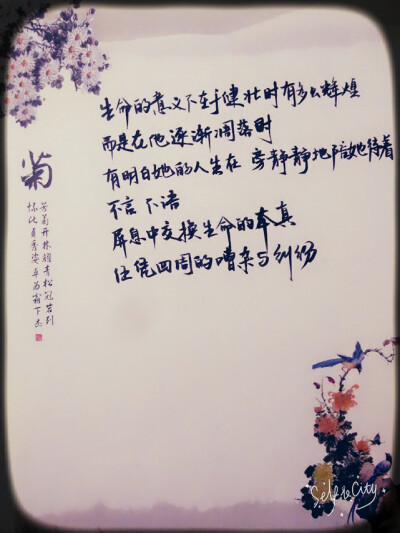 生命的意义不在于健壮时有多么辉煌
而是在他逐渐凋落时
有明白她的人坐在 旁静静地陪她待着
不言不语
屏息中交换生命的本真
任凭四周的嘈杂与纠纷
菊
芳菊开林耀青松冠岩列
怀此贞秀姿卓为霜下杰
Selfie City